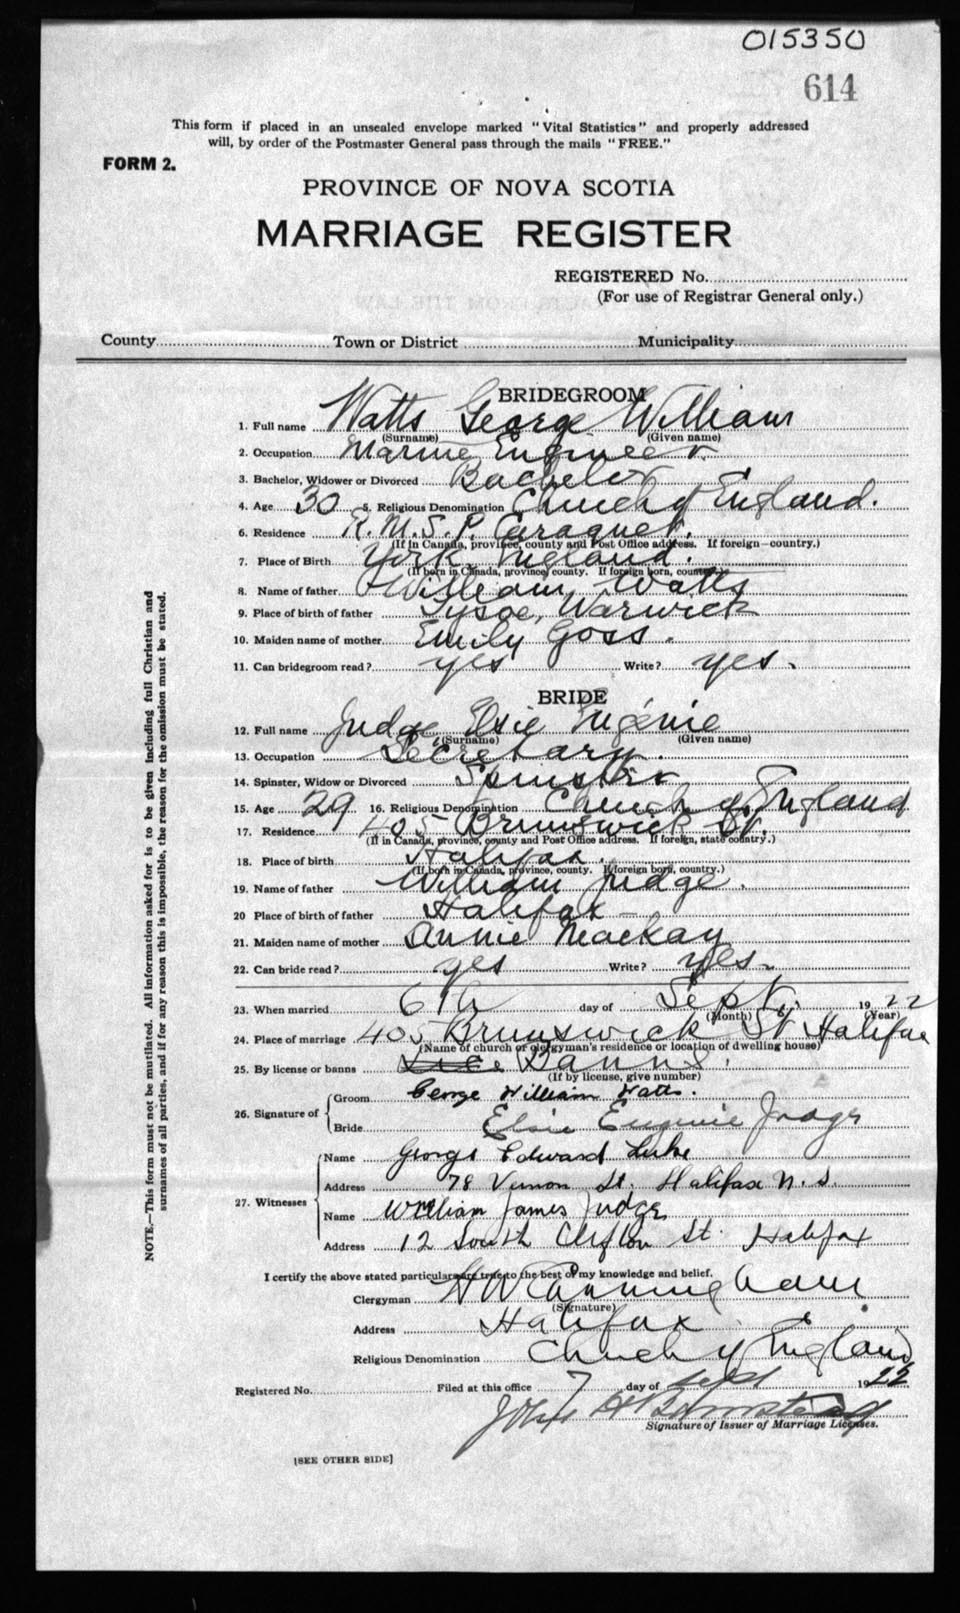 015350
614
This form if placed in an unsealed envelope marked "Vital Statistics" and properly addressed
will, by order of the Postmaster General pass through the mails "FREE."
FORM 2.
PROVINCE OF NOVA SCOTIA
MARRIAGE REGISTER
REGISTERED No.
(For use of Registrar General only.)
County Town or District Municipality
BRIDEGROOM
1. Full name Watts George William
(Surname) (Given name)
2. Occupation Marine Engineer.
3. Bachelor, Widower or Divorced Bachelor
4. Age 30 5. Religious Denomination Church of England.
6. Residence R.M.S.P. Caraquet.
(If in Canada, province, county and Post Office address. If foreign—country.)
7. Place of Birth York England.
(If born in Canada, province, county. If foreign born, country.)
8. Name of father William Watts
9. Place of birth of father Tysoe, Warwick
10. Maiden name of mother Emily Goss.
11. Can bridegroom read? yes Write? yes.
BRIDE
12. Full name Judge Elsie Eugénie
(Surname) (Given name)
13. Occupation Secretary.
14. Spinster, Widow or Divorced Spinster
15. Age 29 16. Religious Denomination Church of England
17. Residence 405 Brunswick St.
(If in Canada, province, county and Post Office address. If foreign, state country.)
18. Place of birth Halifax.
(If born in Canada, province, county. If foreign born, country.)
19. Name of father William Judge.
20 Place of birth of father Halifax
21. Maiden name of mother Annie Mackay
22. Can bride read? yes Write? yes.
23. When married 6th day of Sept. 1922
(Month) (Year)
24. Place of marriage 405 Brunswick St Halifax
(Name of church or clergyman's residence or location of dwelling house)
25. By license or banns Banns
(If by license, give number)
26. Signature of
Groom George William Watts.
Bride Elsie Eugenie Judge
27. Witnesses
Name George Edward Luke
Address 78 Vernon St. Halifax N.S
Name William James Judge
Address 12 South Clifton St. Halifax
I certify the above stated particulars are true to the best of my knowledge and belief.
Clergyman H W Cunningham
(Signature)
Address Halifax
Religious Denomination Church of England
Registered No. Filed at this office 7 day of Sept 1922
John H
Signature of Issuer of Marriage Licenses.
[SEE OTHER SIDE]
NOTE.—This form must not be mutilated. All information asked for is to be given including full Christian and
surnames of all parties, and if for any reason this is impossible, the reason for the omission must be stated.